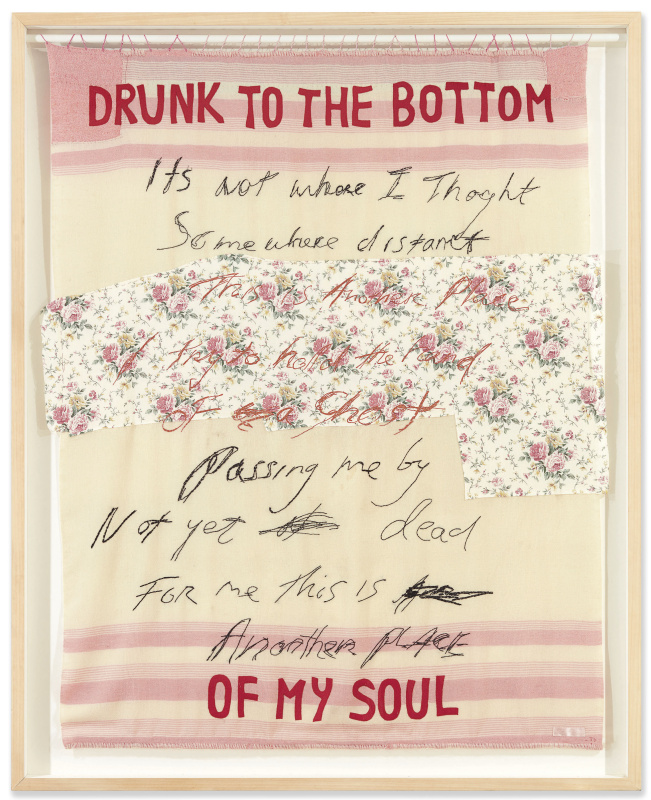 DRUNK TO THE BOTTOM
Its not where I Thoght
Somewhere distant
This is Another Place
I try to hold the hand
of a Ghost
Passing me by
Not yet dead
For me this is
Anonther place
OF MY SOUL